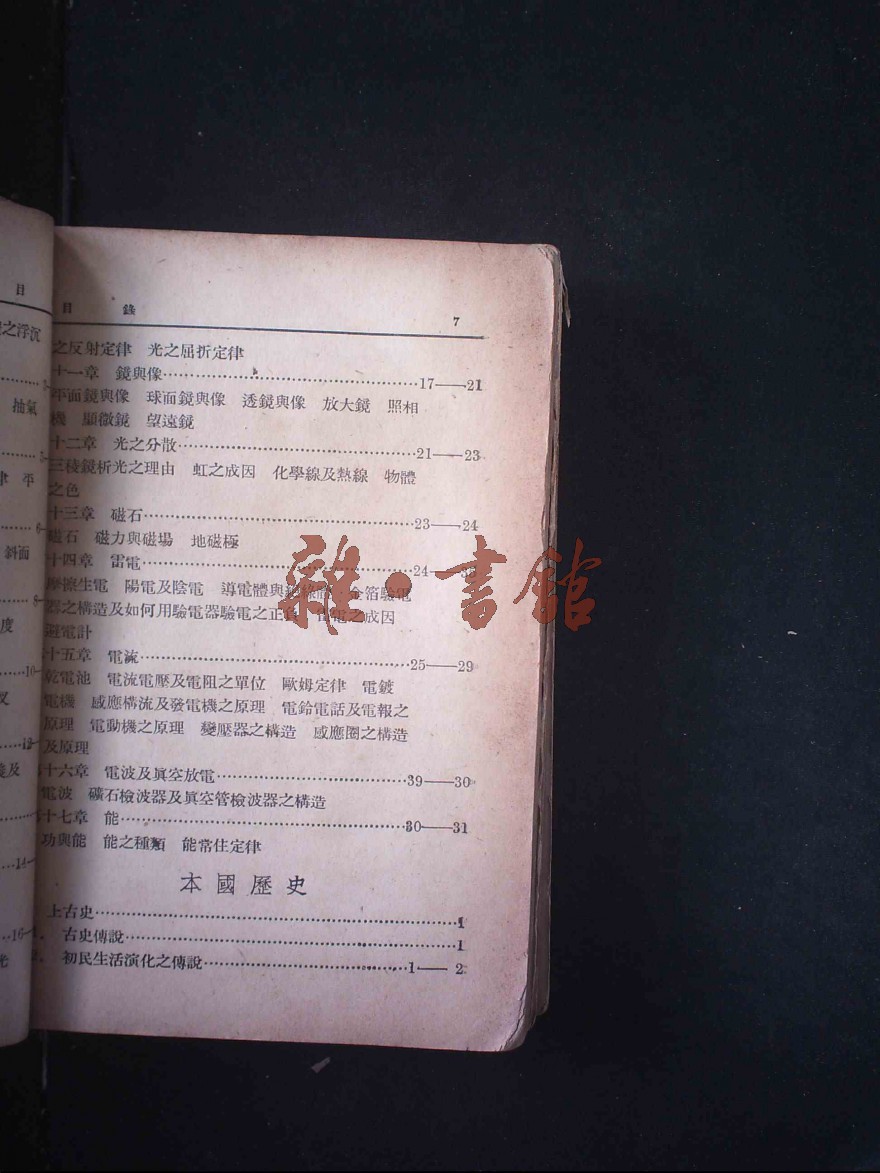 目錄 7
之反射定律 光之屈折定律
十一章 鏡與像 17——21
平面鏡與像 球面鏡與像 透鏡與像 放大鏡 照相
機 顯微鏡 望遠鏡
十二章 光之分散 21——23
三稜鏡析光之理由 虹之成因 化學線及熱線 物體
之色
十三章 磁石 23——24
磁石 磁力與磁場 地磁極
十四章 雷電 24——
摩擦生電 陽電及陰電 導電體與絕緣體 金箔驗電
器之構造及如何用驗電器驗電之正負 雷電之成因
避電計
十五章 電流 25——29
乾電池 電流電壓及電阻之單位 歐姆定律 電鍍
電機 感應構流及發電機之原理 電鈴電話及電報之
原理 電動機之原理 變壓器之構造 感應圈之構造
及原理
十六章 電波及眞空放電 39——30
電波 礦石檢波器及眞空管檢波器之構造
十七章 能 30——31
功與能 能之種類 能常住定律
本國歷史
上古史 1
古史傳說 1
初民生活演化之傳說 1——2
目
之浮沉
抽氣
平
斜面
度
及
光
雜·書館